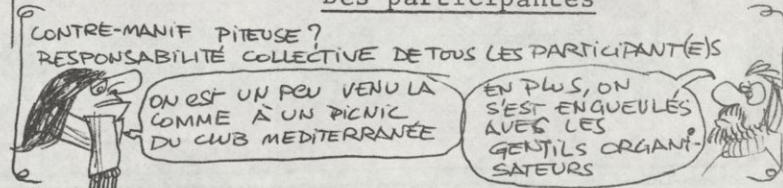 Des participantes
CONTRE-MANIF PITEUSE?
RESPONSABILITÉ COLLECTIVE DE TOUS LES PARTICIPANT(E)S
ON EST UN PEU VENU LÀ
COMME À UN PICNIC
DU CLUB MEDITERRANÉE
EN PLUS, ON
S'EST ENGUEULÉS
AVES LES
GENTILS ORGANI-
SATEURS